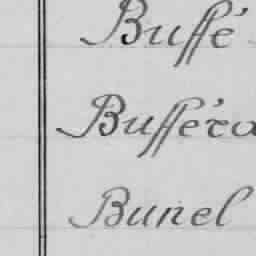 Buffé
Bufféra
Bunel